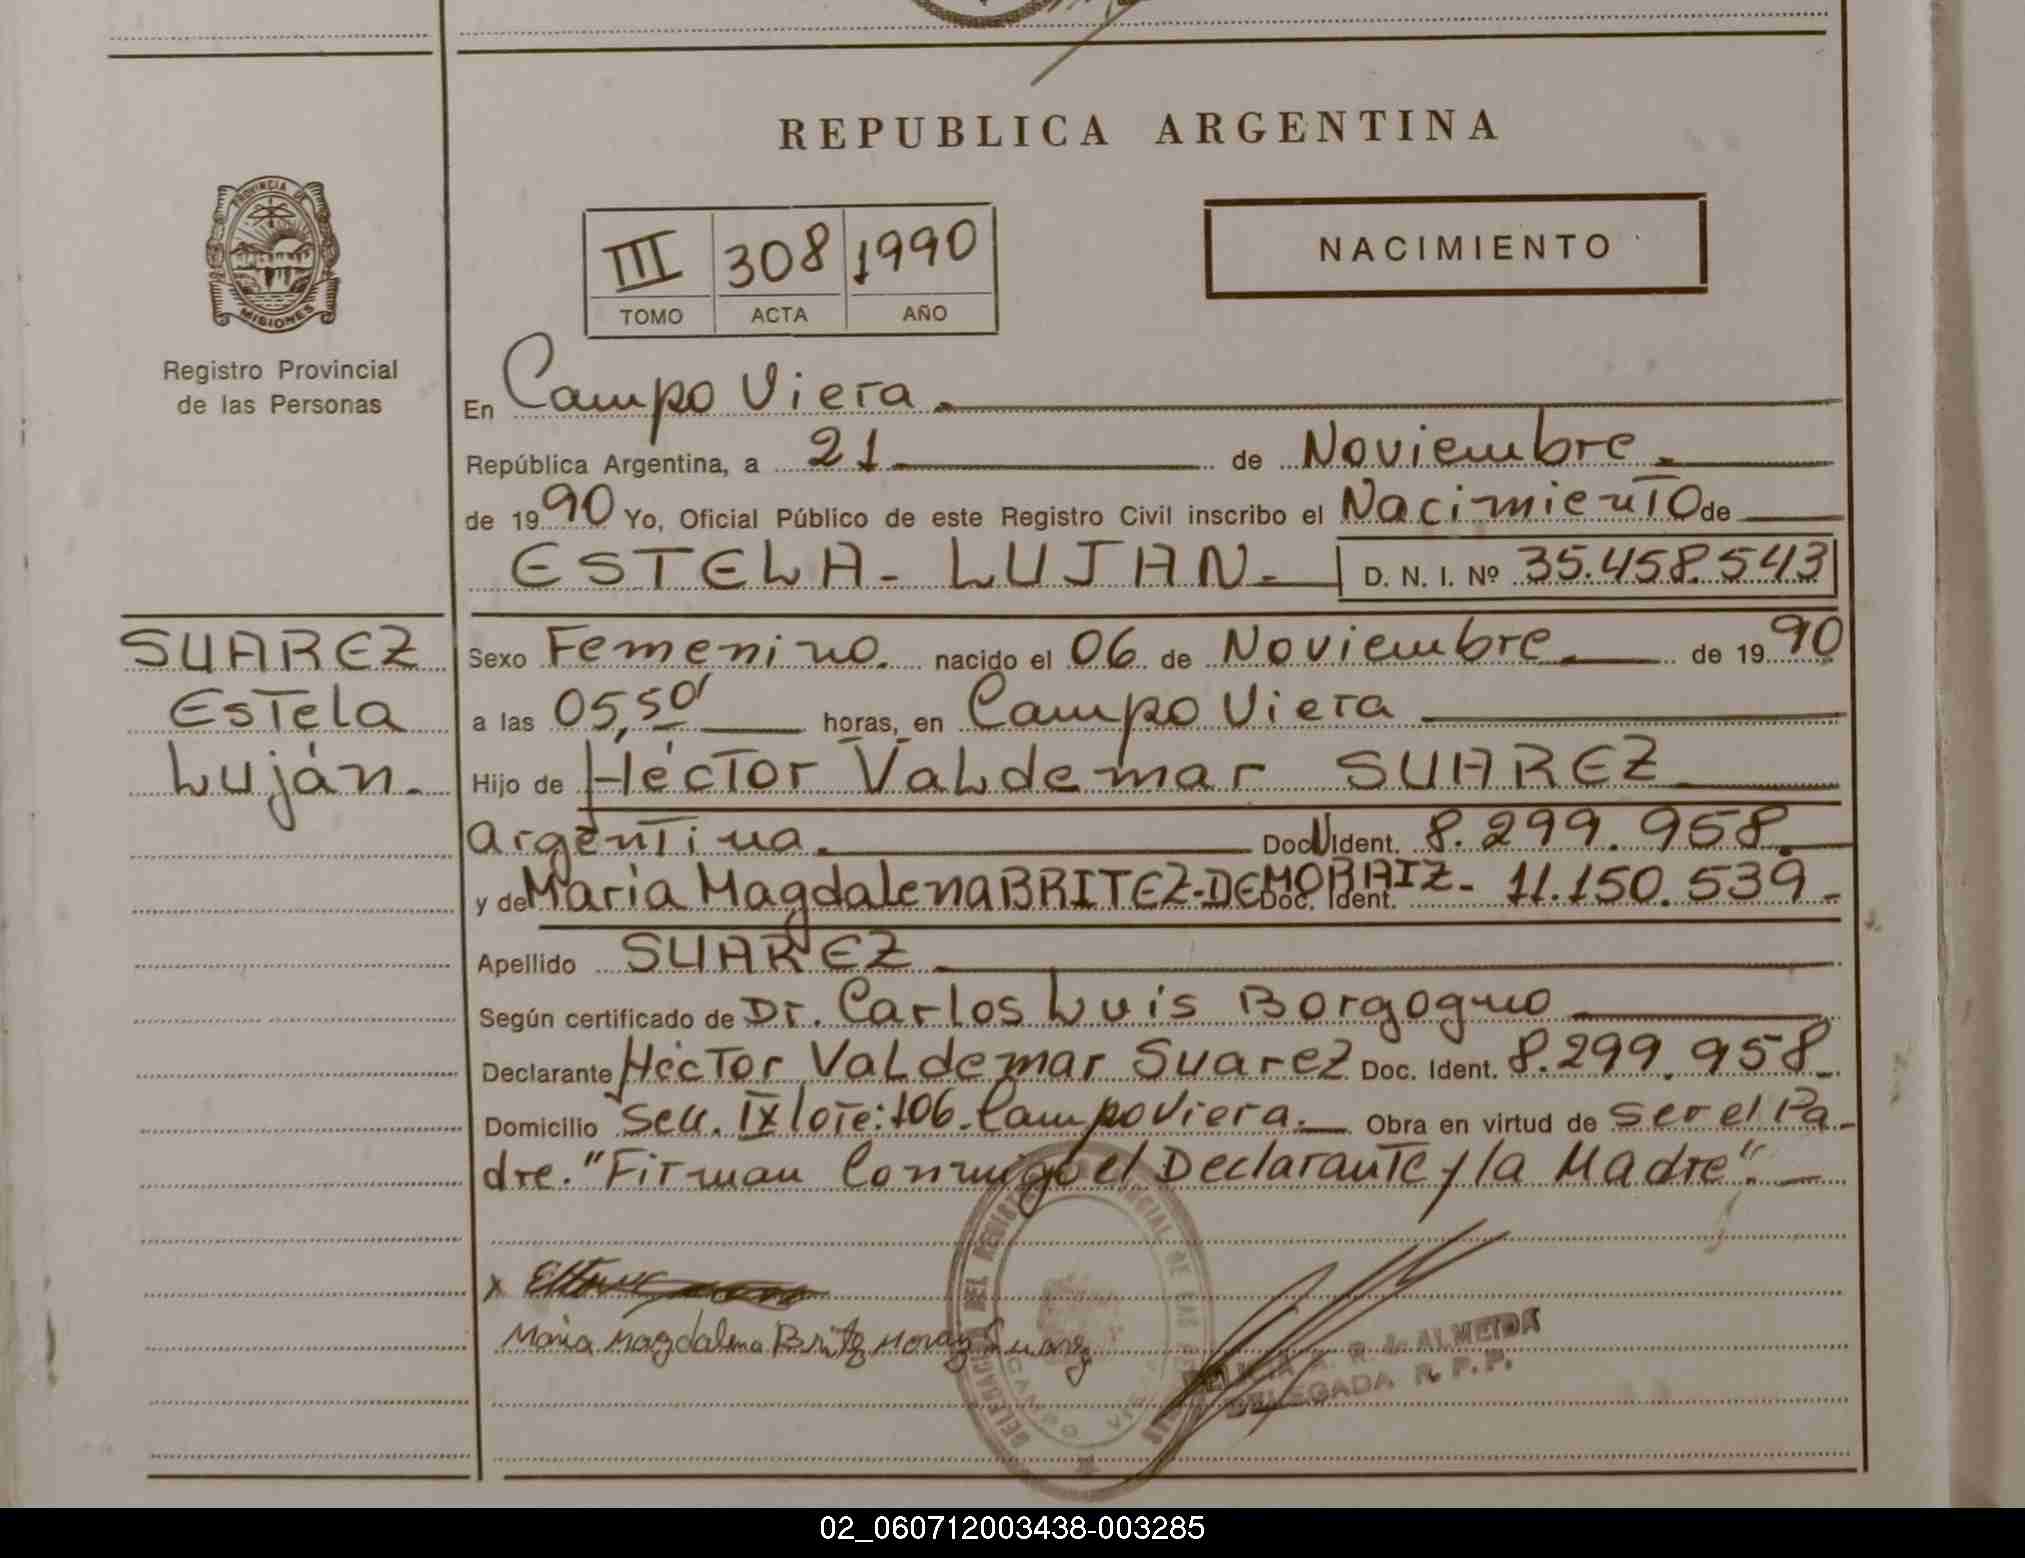 REPUBLICA ARGENTINA
PROVINCIA DE
MISIONES
Registro Provincial
de las Personas
III 308 1990
TOMO ACTA AÑO
NACIMIENTO
En Campo Viera.
República Argentina, a 21 de Noviembre.
de 1990 Yo, Oficial Público de este Registro Civil inscribo el Nacimiento de
ESTELA - LUJAN. D. N. I. Nº 35.458.543
SUAREZ
Estela
Luján.
Sexo Femenino. nacido el 06 de Noviembre. de 1990
a las 05,50 horas, en Campo Viera
Hijo de Héctor Valdemar SUAREZ
argentina. Doc. Ident. 8.299.958.
y de Maria Magdalena BRITEZ-DE MORAIZ- Doc. Ident. 11.150.539.
Apellido SUAREZ
Según certificado de Dr. Carlos Luis Borgogno
Declarante Héctor Valdemar Suarez Doc. Ident. 8.299.958.
Domicilio Secc. IX lote: 106. Campo Viera. Obra en virtud de ser el Pa-
dre. "Firman Conmigo el Declarante y la Madre".
x
Maria Magdalena Britez Moraiz Suarez
R. J. ALMEIDA
DELEGADA R. P. P.
02_060712003438-003285